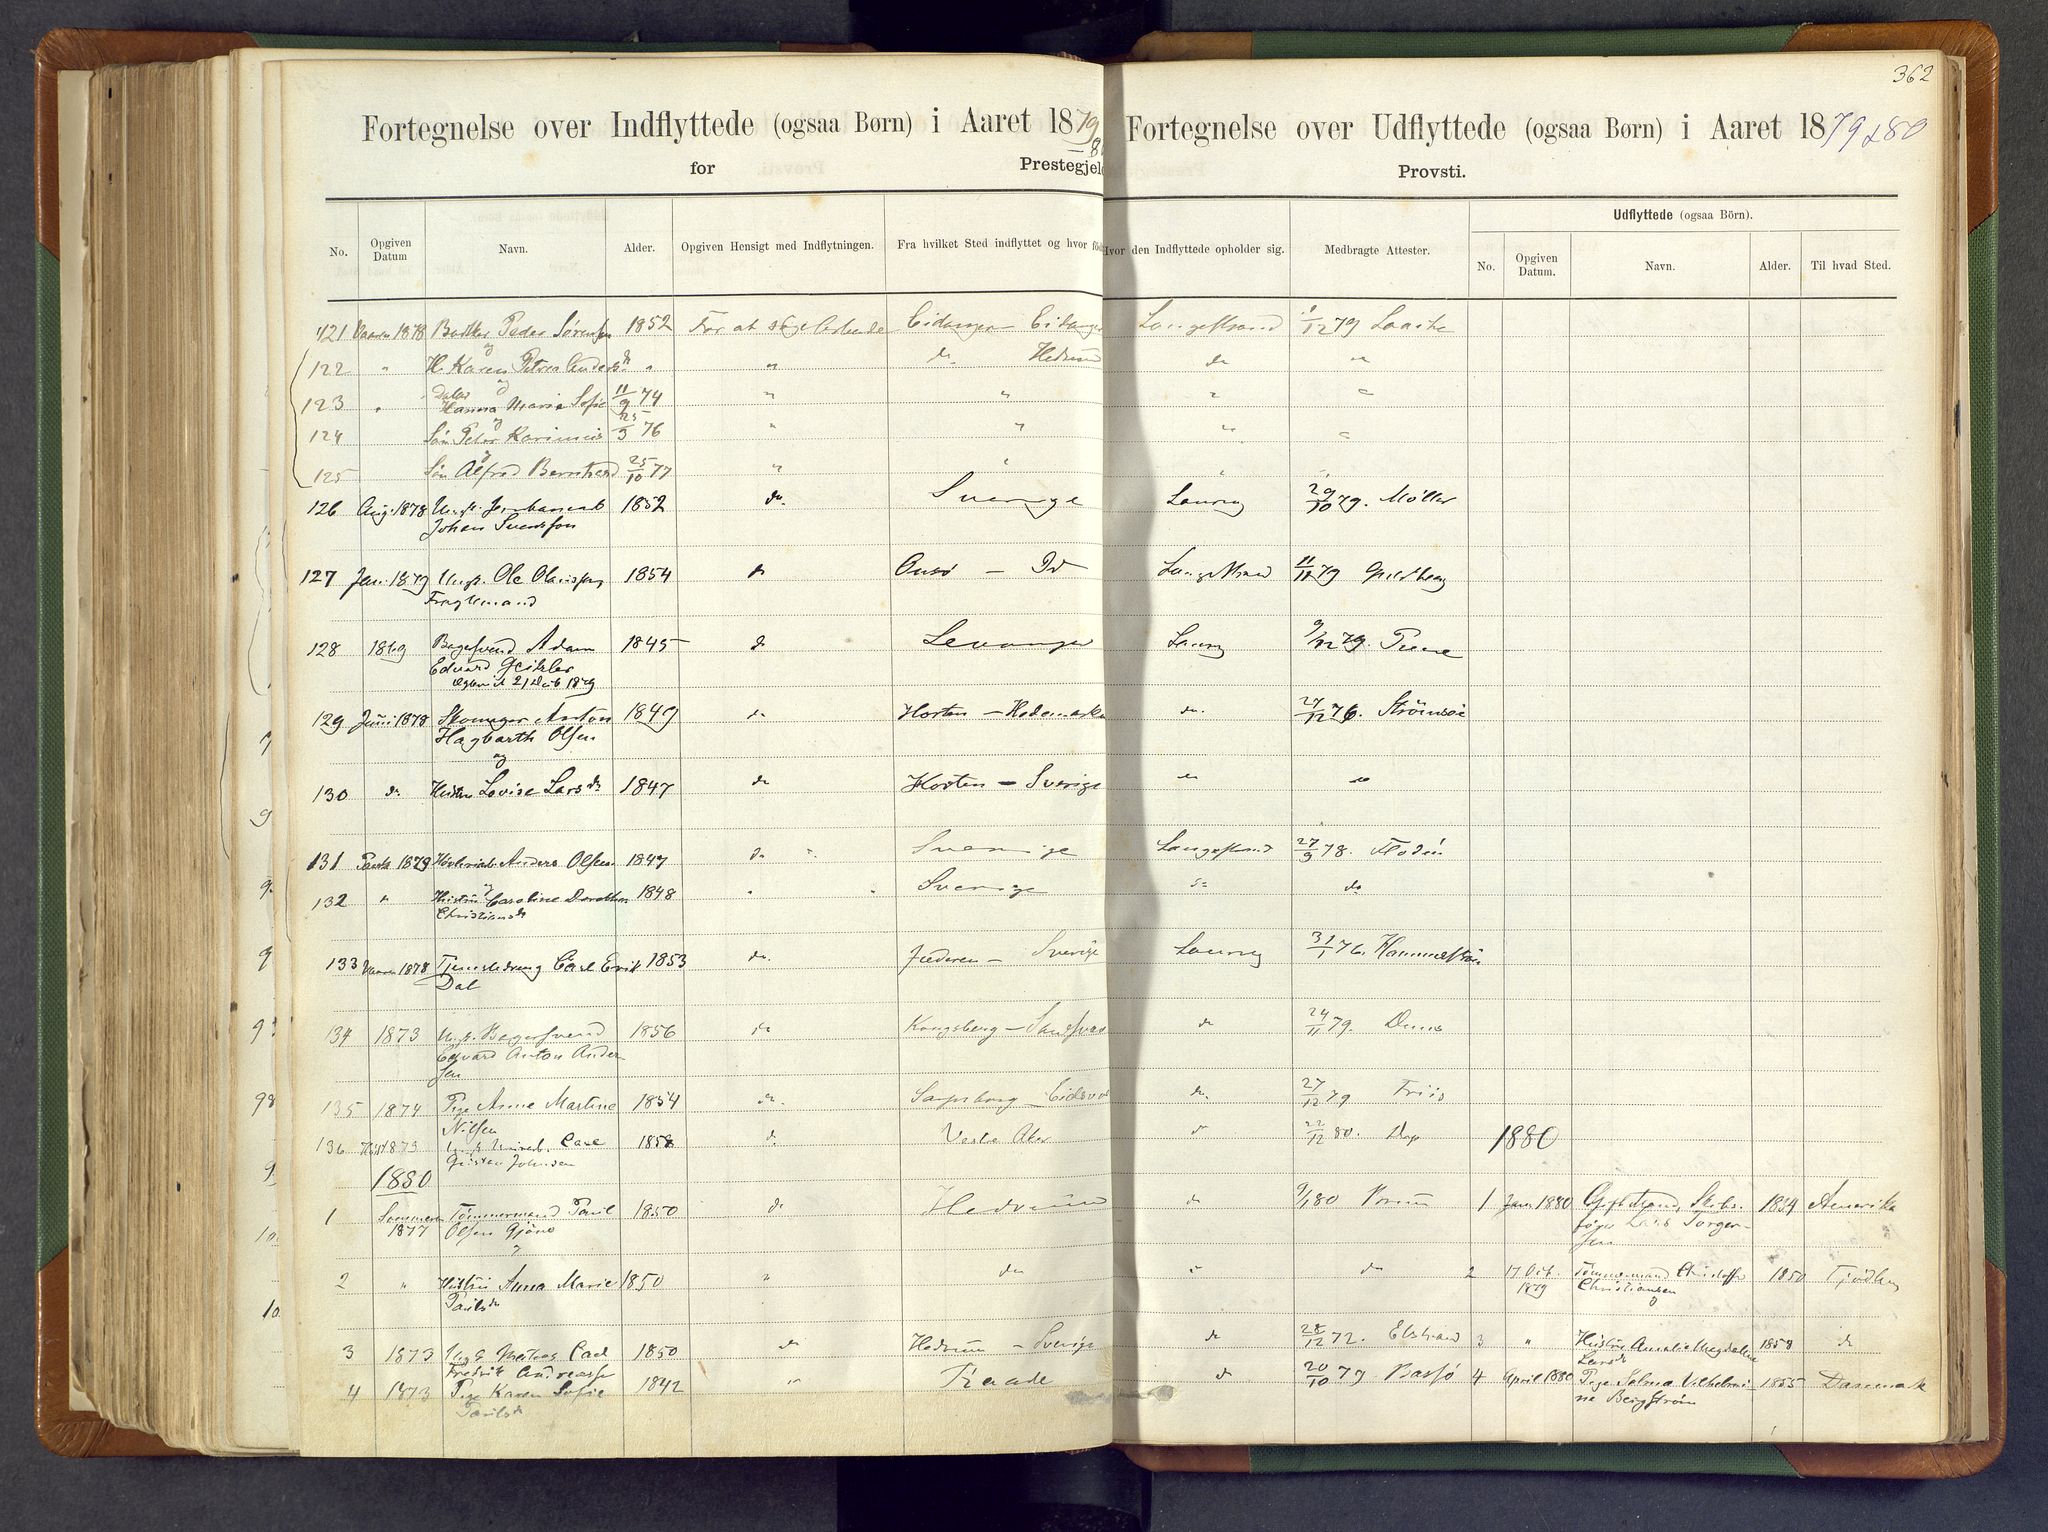 362
Fortegnelse over Indflyttede (ogsaa Børn) i Aaret 1879
80
for Prestegjeld
No. Opgiven Datum Navn. Alder. Opgiven Hensigt med Indflytningen. Fra hvilket Sted indflyttet og hvor fød
121 Vaaren 1878 Peder Sørensen 1852 For at søge Arbeide Eidanger – Eidanger
og
122 " H. Karen Petrea Anders d. " " do Hedrum
og
123 " Datter Hanna Marie Sofie 11/9 74 " "
og
124 Søn Peter Karinius 25/3 76 " "
og
125 Søn Alfred Berntzed 25/10 77 " "
126 Aug. 1878 Ungk. 1852 do. Sverige
Johan Svensson
127 Jan. 1879 Ungk. Ole Olaussen 1854 do – Id
Fragtemand
128 1869 Bagersvend Adam 1845 do Levanger
Edvard
21 Deb 1879
129 Juni 1878 Skomager Anton 1849 do Horten – Hedemarken
Hagbarth Olsen
og
130 do. Hustru Lovise Lars d. 1847 do Horten – Sverige
131 1879 Anders Olsen 1847 do Sverige
og
132 " Hustru Caroline Dorothea 1848 " " Sverige
Christians d.
133 Vaaren 1878 Tjenestedreng Carl Erik 1853 do. Jæderen – Sverige
Dal
134 1873 Ungk. Bagersvend 1856 do Kongsberg – Sandsvær
Edvard Anton Ander
sen
135 1874 Pige Anne Martine 1854 do. Sarpsborg – Eidsvol
Nilsen
136 Høst 1873 Carl 1858 do Vestre Aker
Gustav Johnsen
1880
1 Sommeren 1877 Tømmermand Paul 1850 do Hedrum
Olsen Gjøne
og
2 " Hustru Anna Marie 1850 " do
Pauls d.
3 1873 Ungk. Carl 1850 do Hedrum – Sverige
Fredrik Andreassen
4 1873 Pige Karen Sofie 1842 " Raade
Pauls d.
Fortegnelse over Udflyttede (ogsaa Børn) i Aaret 1879 & 80
Provsti.
Hvor den Indflyttede opholder sig. Medbragte Attester. Udflyttede (ogsaa Börn).
No. Opgiven Datum. Navn. Alder. Til hvad Sted.
Langestrand 1/12 79 Laache
do "
" "
" "
"
Laurvig 29/10 79. Møller
Langestrand 11/12 79 Guldberg
Laurvig 9/12 79.
do. 27/12 76. Strømsøe
" "
Langestrand 27/9 78. Flodin
do do
Laurvig 31/1 76. Hammerstrøm
do 24/11 79.
do. 27/12 79 Friis
do 22/12 80. 1880
do 9/1 80 1 Jan. 1880 Gift 1834 Amerika
Lars Torger-
sen
" do 2 17 Oct. 1879 Tømmermand Christoffer 1850 Tjødling
Christiansen
og
do 28/12 72. Ekstrand 3 " Hustru Amalie Magdalene 1858 do
Lars d.
do 20/10 79 Bassø 4 April 1880 Pige Selma Vilhelmi 1855 Danmark
ne Bergstrøm